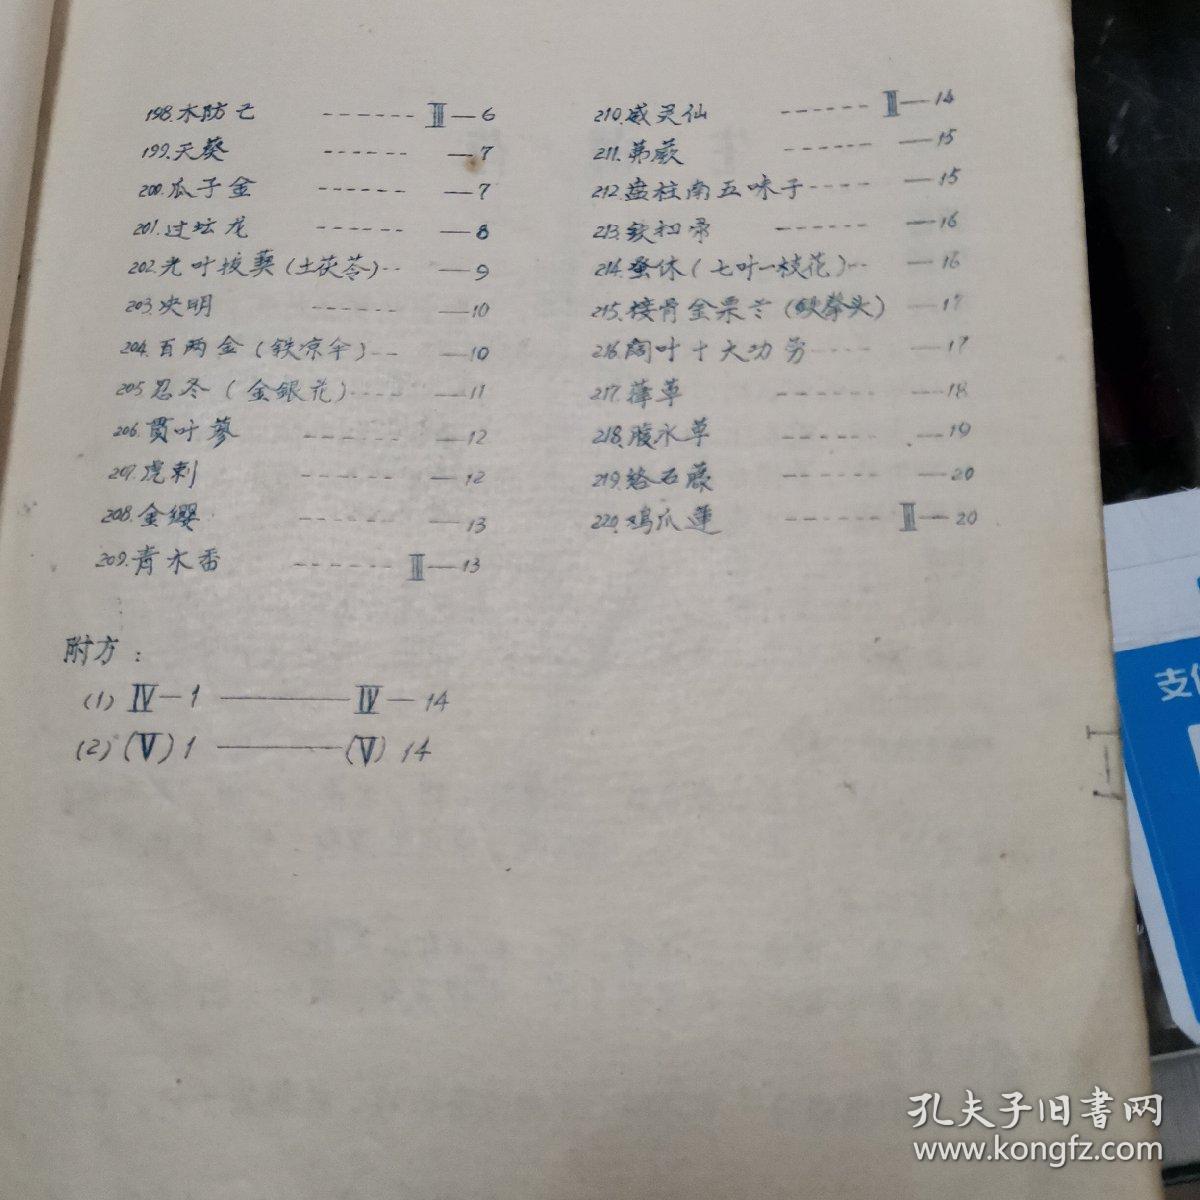 198.木防己 ------ Ⅲ—6
199.天葵 ------ —7
200.瓜子金 ------ —7
201.过坛龙 ------ —8
202.光叶拔葜(土茯苓)-- —9
203.决明 ------ —10
204.百两金(铁凉伞)-- —10
205.忍冬(金銀花)---- —11
206.贯叶蓼 ------ —12
207.虎刺 ------ —12
208.金缨 ------ —13
209.青木香 ------ Ⅲ—13
210.威灵仙 ------ Ⅲ—14
211.苐蕨 ------ —15
212.盘柱南五味子---- —15
213.铁扫帚 ------ —16
214.蚤休(七叶一枝花)-- —16
215.接骨金粟兰(铁拳头) —17
216.阔叶十大功劳---- —17
217.葎草 ------ —18
218.腹水草 ------ —19
219.络石藤 ------ —20
220.鸡爪莲 ------ Ⅲ—20
附方:
(1) Ⅳ—1 ———— Ⅳ—14
(2) (Ⅴ) 1 ———— (Ⅴ) 14
Ⅰ—1
支
孔夫子旧書网
www.kongfz.com